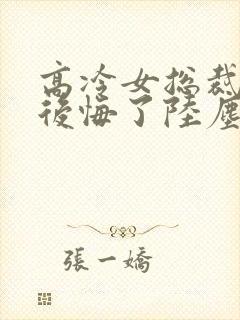 高冷女总裁
後悔了陸塵
張一嬌